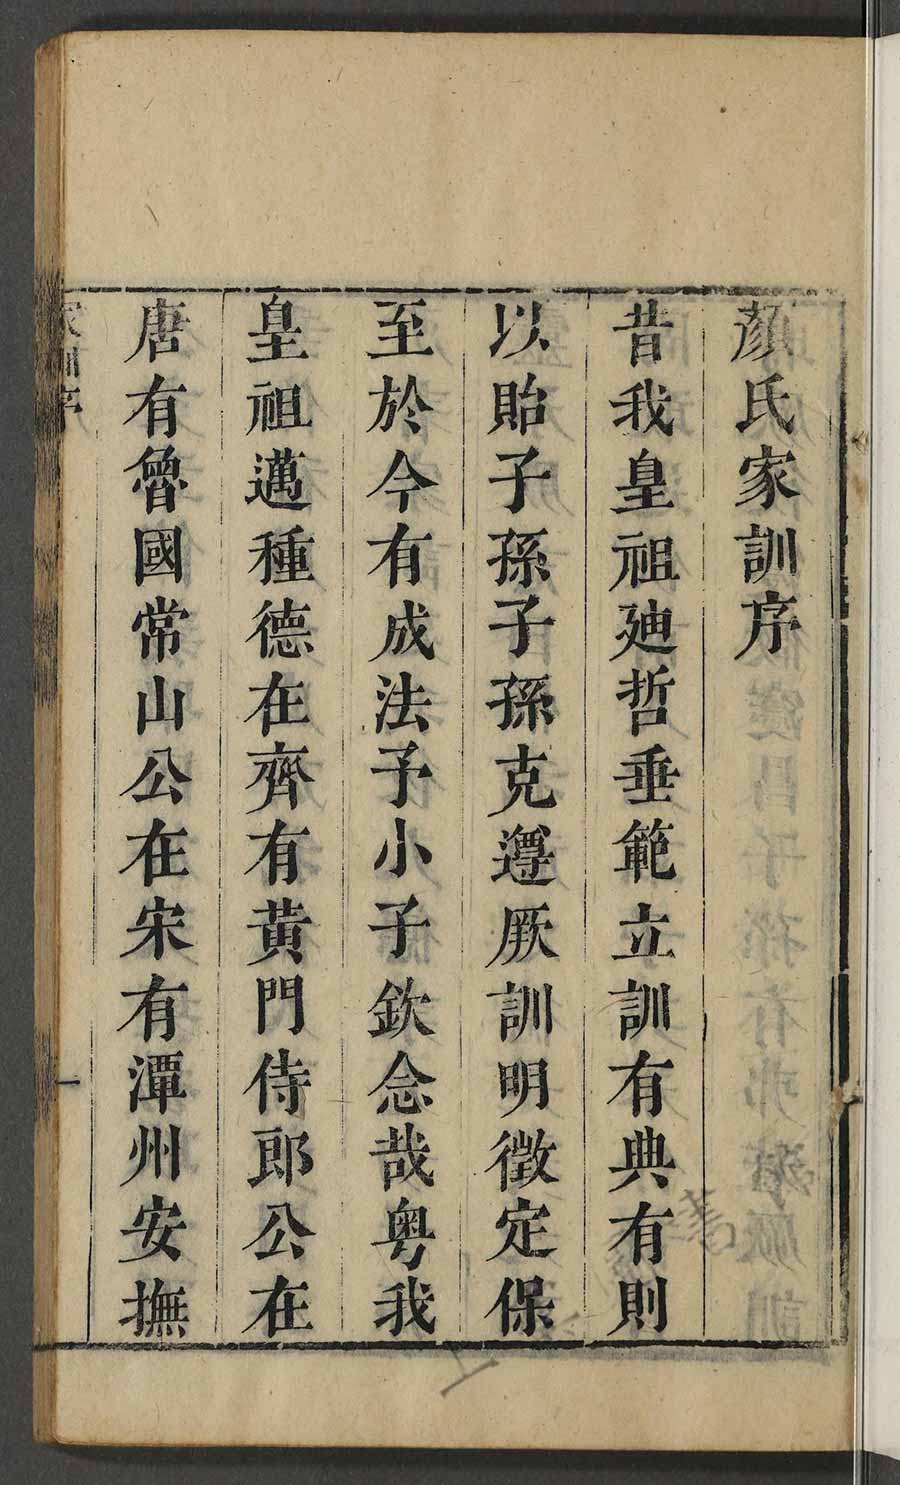 顏氏家訓序
昔我皇祖廸哲垂範立訓有典有則
以貽子孫子孫克遵厥訓明徵定保
至於今有成法予小子欽念哉粤我
皇祖邁種德在齊有黃門侍郎公在
唐有魯國常山公在宋有潭州安撫
家訓序
一